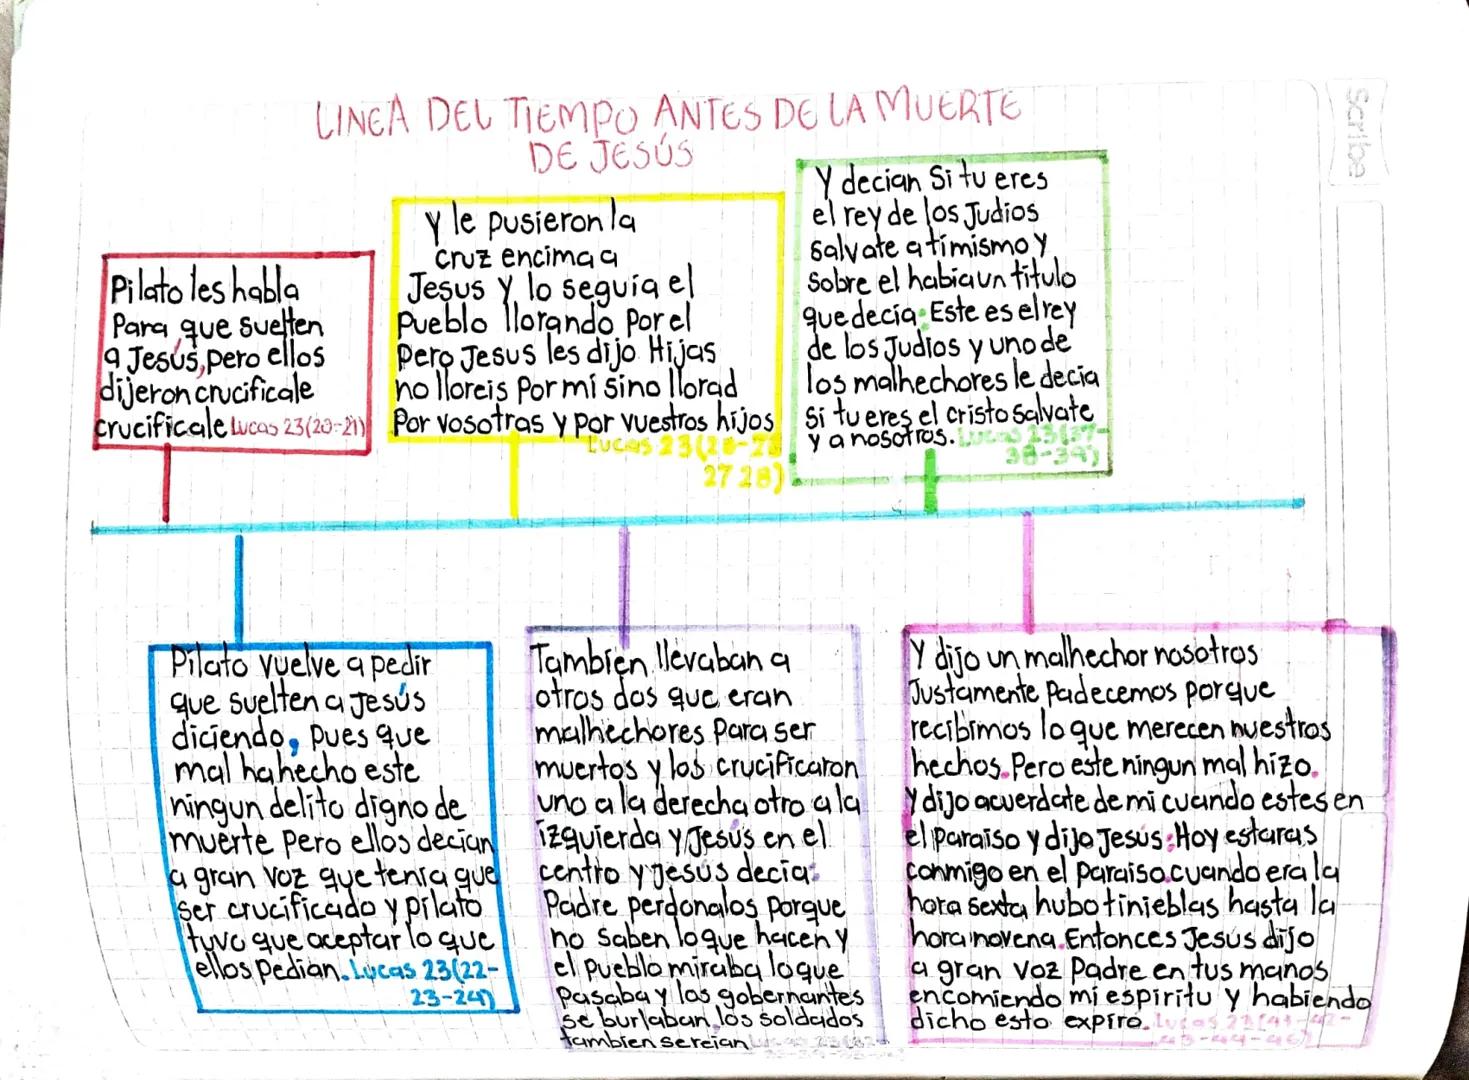 LINEA DEL TIEMPO ANTES DE LA MUERTE
DE JESÚS
Scribe
Pilato les habla
Para que suelten
a Jesús, pero ellos
dijeron crucificale
crucificale Lucas 23(20-21)
y le pusieron la
cruz encima a
Jesus y lo seguia el
Pueblo llorando por el
pero Jesus les dijo Hijas
no lloreis por mi sino llorad
Por vosotras y por vuestros hijos
Lucas 23(26-
27 28)
Y decian Si tu eres
el rey de los Judios
salvate a ti mismo y
sobre el habia un titulo
que decia: Este es el rey
de los Judios y uno de
los malhechores le decia
si tu eres el cristo salvate
y a nosotros. Lucas 23(37-
38-39)
Pilato vuelve a pedir
que suelten a Jesús
diciendo, pues que
mal ha hecho este
ningun delito digno de
muerte pero ellos decian
a gran voz que tenia que
ser crucificado y pilato
tuvo que aceptar lo que
ellos pedian. Lucas 23(22-
23-24)
Tambien llevaban a
otros dos que eran
malhechores para ser
muertos y los crucificaron
uno a la derecha otro a la
izquierda y Jesús en el
centro y Jesus decia:
Padre perdonalos porque
no saben lo que hacen y
el pueblo miraba lo que
pasaba y los gobernantes
se burlaban, los soldados
tambien se reian
Y dijo un malhechor nosotros
Justamente padecemos porque
recibimos lo que merecen nuestros
hechos. Pero este ningun mal hizo.
y dijo acuerdate de mi cuando estes en
el paraiso y dijo Jesus: Hoy estaras
conmigo en el paraiso. cuando era la
hora sexta hubo tinieblas hasta la
hora novena. Entonces Jesus dijo
a gran voz Padre en tus manos
encomiendo mi espiritu y habiendo
dicho esto expiro. Lucas 23(41-42-
43-44-46)